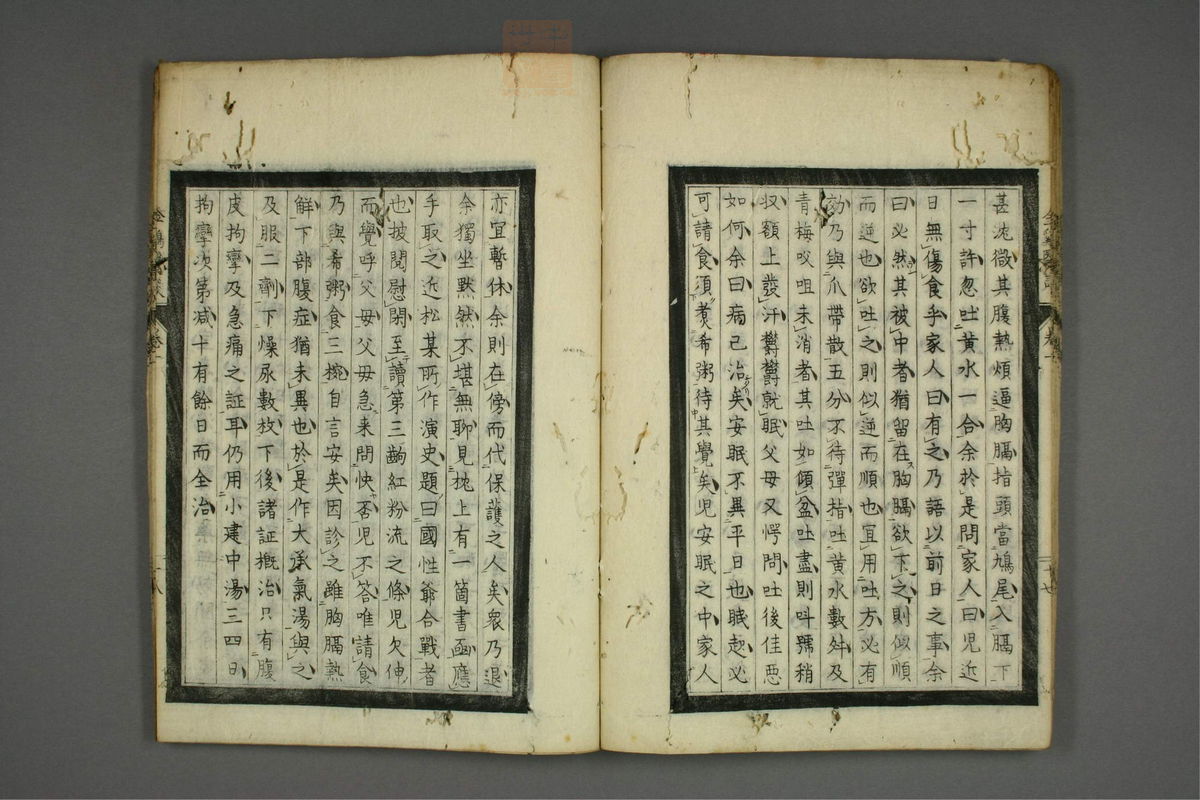 甚沈微其腹熱煩逼胸膈指頭當鳩尾入膈下
一寸許忽吐黄水一合余於是問家人曰児近
日無傷食乎家人曰有之乃語以前日之事余
曰必然其被中者猶留在胸膈欲下之則似順
而逆也欲吐之則似逆而順也宜用吐方必有
効乃與爪蒂散五分不待彈指吐黄水數舛及
青梅咬咀未消者其吐如傾盆吐盡則呌號稍
収額上發汗欝欝就眠父母又愕問吐後佳悪
如何余曰病已治矣安眠不異平日也眠起必
可請食須煑希粥待其覺矣児安眠之中家人
亦宜暫休余則在傍而代保護之人矣衆乃退
余獨坐黙然不堪無聊見枕上有一箇書函應
手取之近松某所作演史題曰國性爺合戰者
也披閲慰閑至讀第三齣紅粉流之條児欠伸
而覺呼父母父母急来問快否児不答唯請食
乃與希粥食三椀自言安矣因診之雖胸膈熱
解下部腹症猶未異也於是作大承氣湯與之
及服二劑下燥屎數枚下後諸証概治只有腹
皮拘攣及急痛之証耳仍用小建中湯三四日
拘攣次第減十有餘日而全治